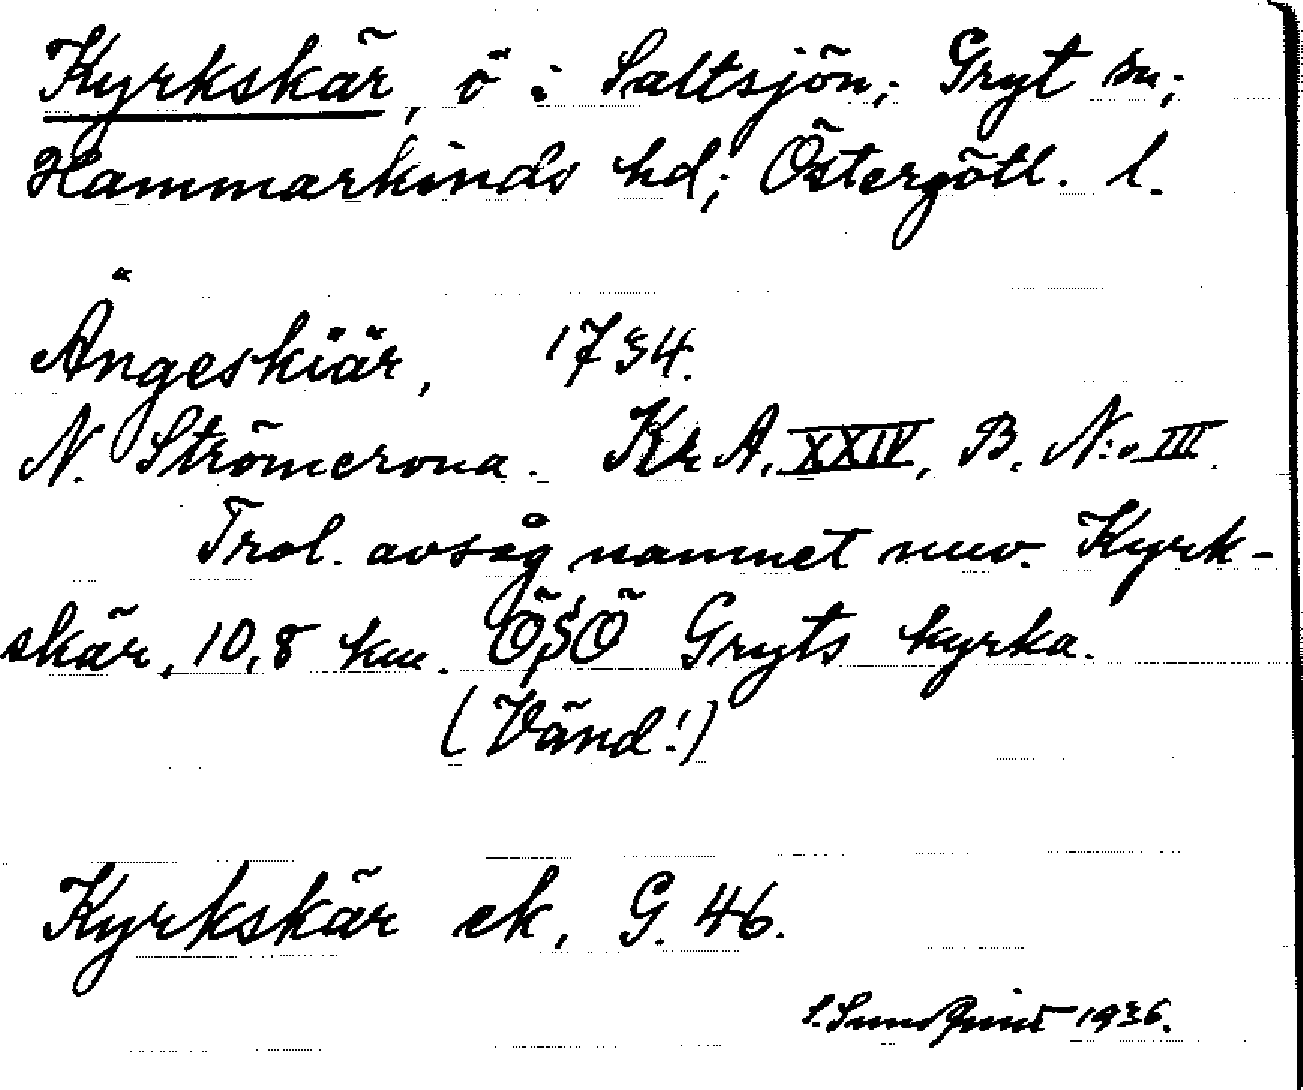 Kyrkskär, ö i Saltsjön; Gryt sn;
Hammarkinds hd; Östergötl. l.
Ängeskiär, 1734.
N. Strömerona. Kr A. XXIV, B. N:o III.
Trol. avsåg namnet nuv. Kyrk-
skär, 10,8 km. ÖSÖ Gryts kyrka.
(Vänd!)
Kyrkskär ek, G. 46.
S. Sundquist 1936.